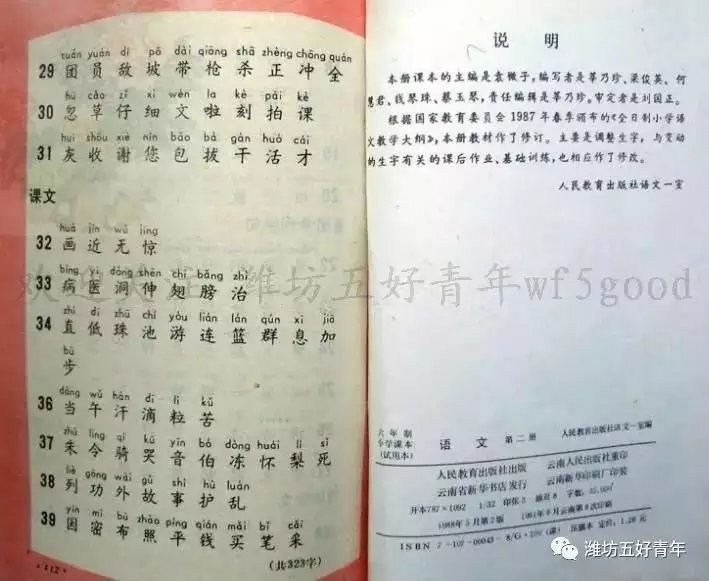 tuán yuán dí pō dài qiāng shā zhèng chōng quán
29 团 员 敌 坡 带 枪 杀 正 冲 全
hū cǎo zǐ xì wén la kè pāi kè
30 忽 草 仔 细 文 啦 刻 拍 课
huī shōu xiè nín bāo bá gàn huó cái
31 灰 收 谢 您 包 拔 干 活 才
课文
huà jìn wú jīng
32 画 近 无 惊
bìng yī dòng shēn chì bǎng zhì
33 病 医 洞 伸 翅 膀 治
zhí dī zhū chí yóu lián lán qún xī jiā
34 直 低 珠 池 游 连 篮 群 息 加
bù
步
dāng wǔ hàn dī lì kǔ
36 当 午 汗 滴 粒 苦
zhū lìng qí kū yīn bó dòng huái lí sǐ
37 朱 令 骑 哭 音 伯 冻 怀 梨 死
liè gōng wài gù shì hù luàn
38 列 功 外 故 事 护 乱
yīn mì bù zhào píng qián mǎi bǐ cǎi
39 因 密 布 照 平 钱 买 笔 采
(共323字)
·112·
说 明
本册课本的主编是袁微子,编写者是莘乃珍、梁俊英、何
慧君、钱琴珠、蔡玉琴,责任编辑是莘乃珍。审定者是刘国正。
根据国家教育委员会1987年春季颁布的《全日制小学语
文教学大纲》,本册教材作了修订。主要是调整生字,与变动
的生字有关的课后作业、基础训练,也相应作了修改。
人民教育出版社语文一室
欢迎关注 潍坊五好青年wf5good
六年制
小学课本
(试用本)
语文 第二册 人民教育出版社语文一室编
人民教育出版社出版 云南人民出版社重印
云南省新华书店发行 云南新华印刷厂印装
开本787×1092 1/32 印张 插页 字数
1988年5月第2版 1991年 月云南第 次印刷
ISBN 7-107-00043-8/G·100(课) 压膜本 定价 1.28 元
潍坊五好青年